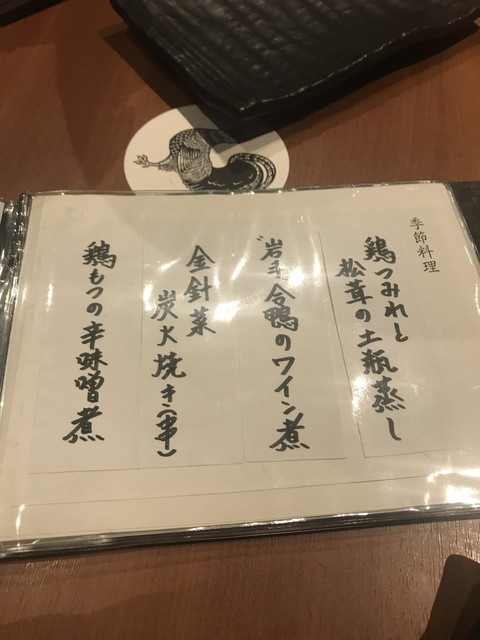 季節料理
鶏つみれと
松茸の土瓶蒸し
岩手合鴨のワイン煮
金針菜
炭火焼き(串)
鶏もつの辛味噌煮